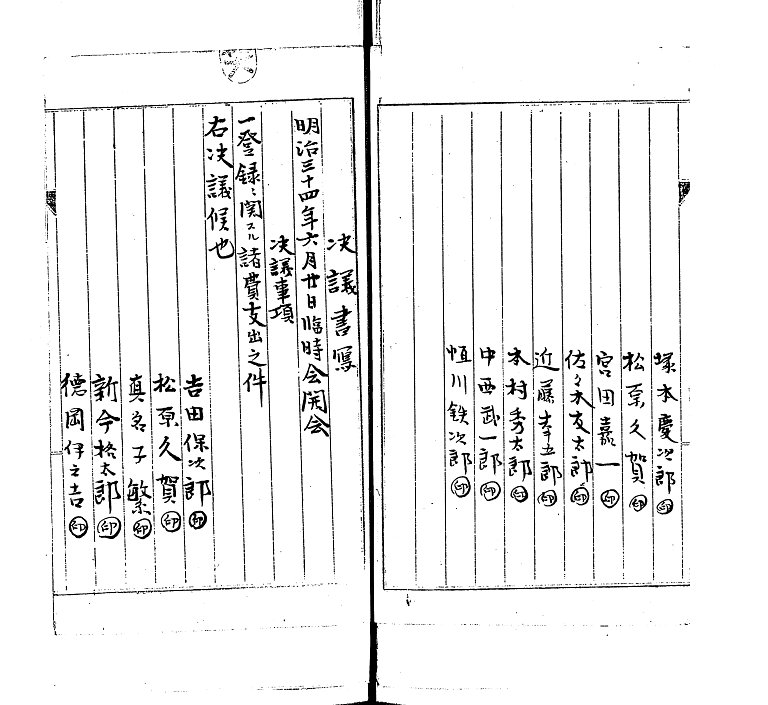 塚本慶次郎㊞
松原久賀㊞
宮田嘉一㊞
佐々木友太郎㊞
近藤幸五郎㊞
木村秀太郎㊞
中西武一郎㊞
恒川鉄次郎㊞
决議書寫
明治三十四年六月廿日臨時会開会
决議事項
一登録ニ関スル諸費支出之件
右决議候也
吉田保次郎㊞
松原久賀㊞
真名子繁㊞
新今格太郎㊞
德岡伊之吉㊞